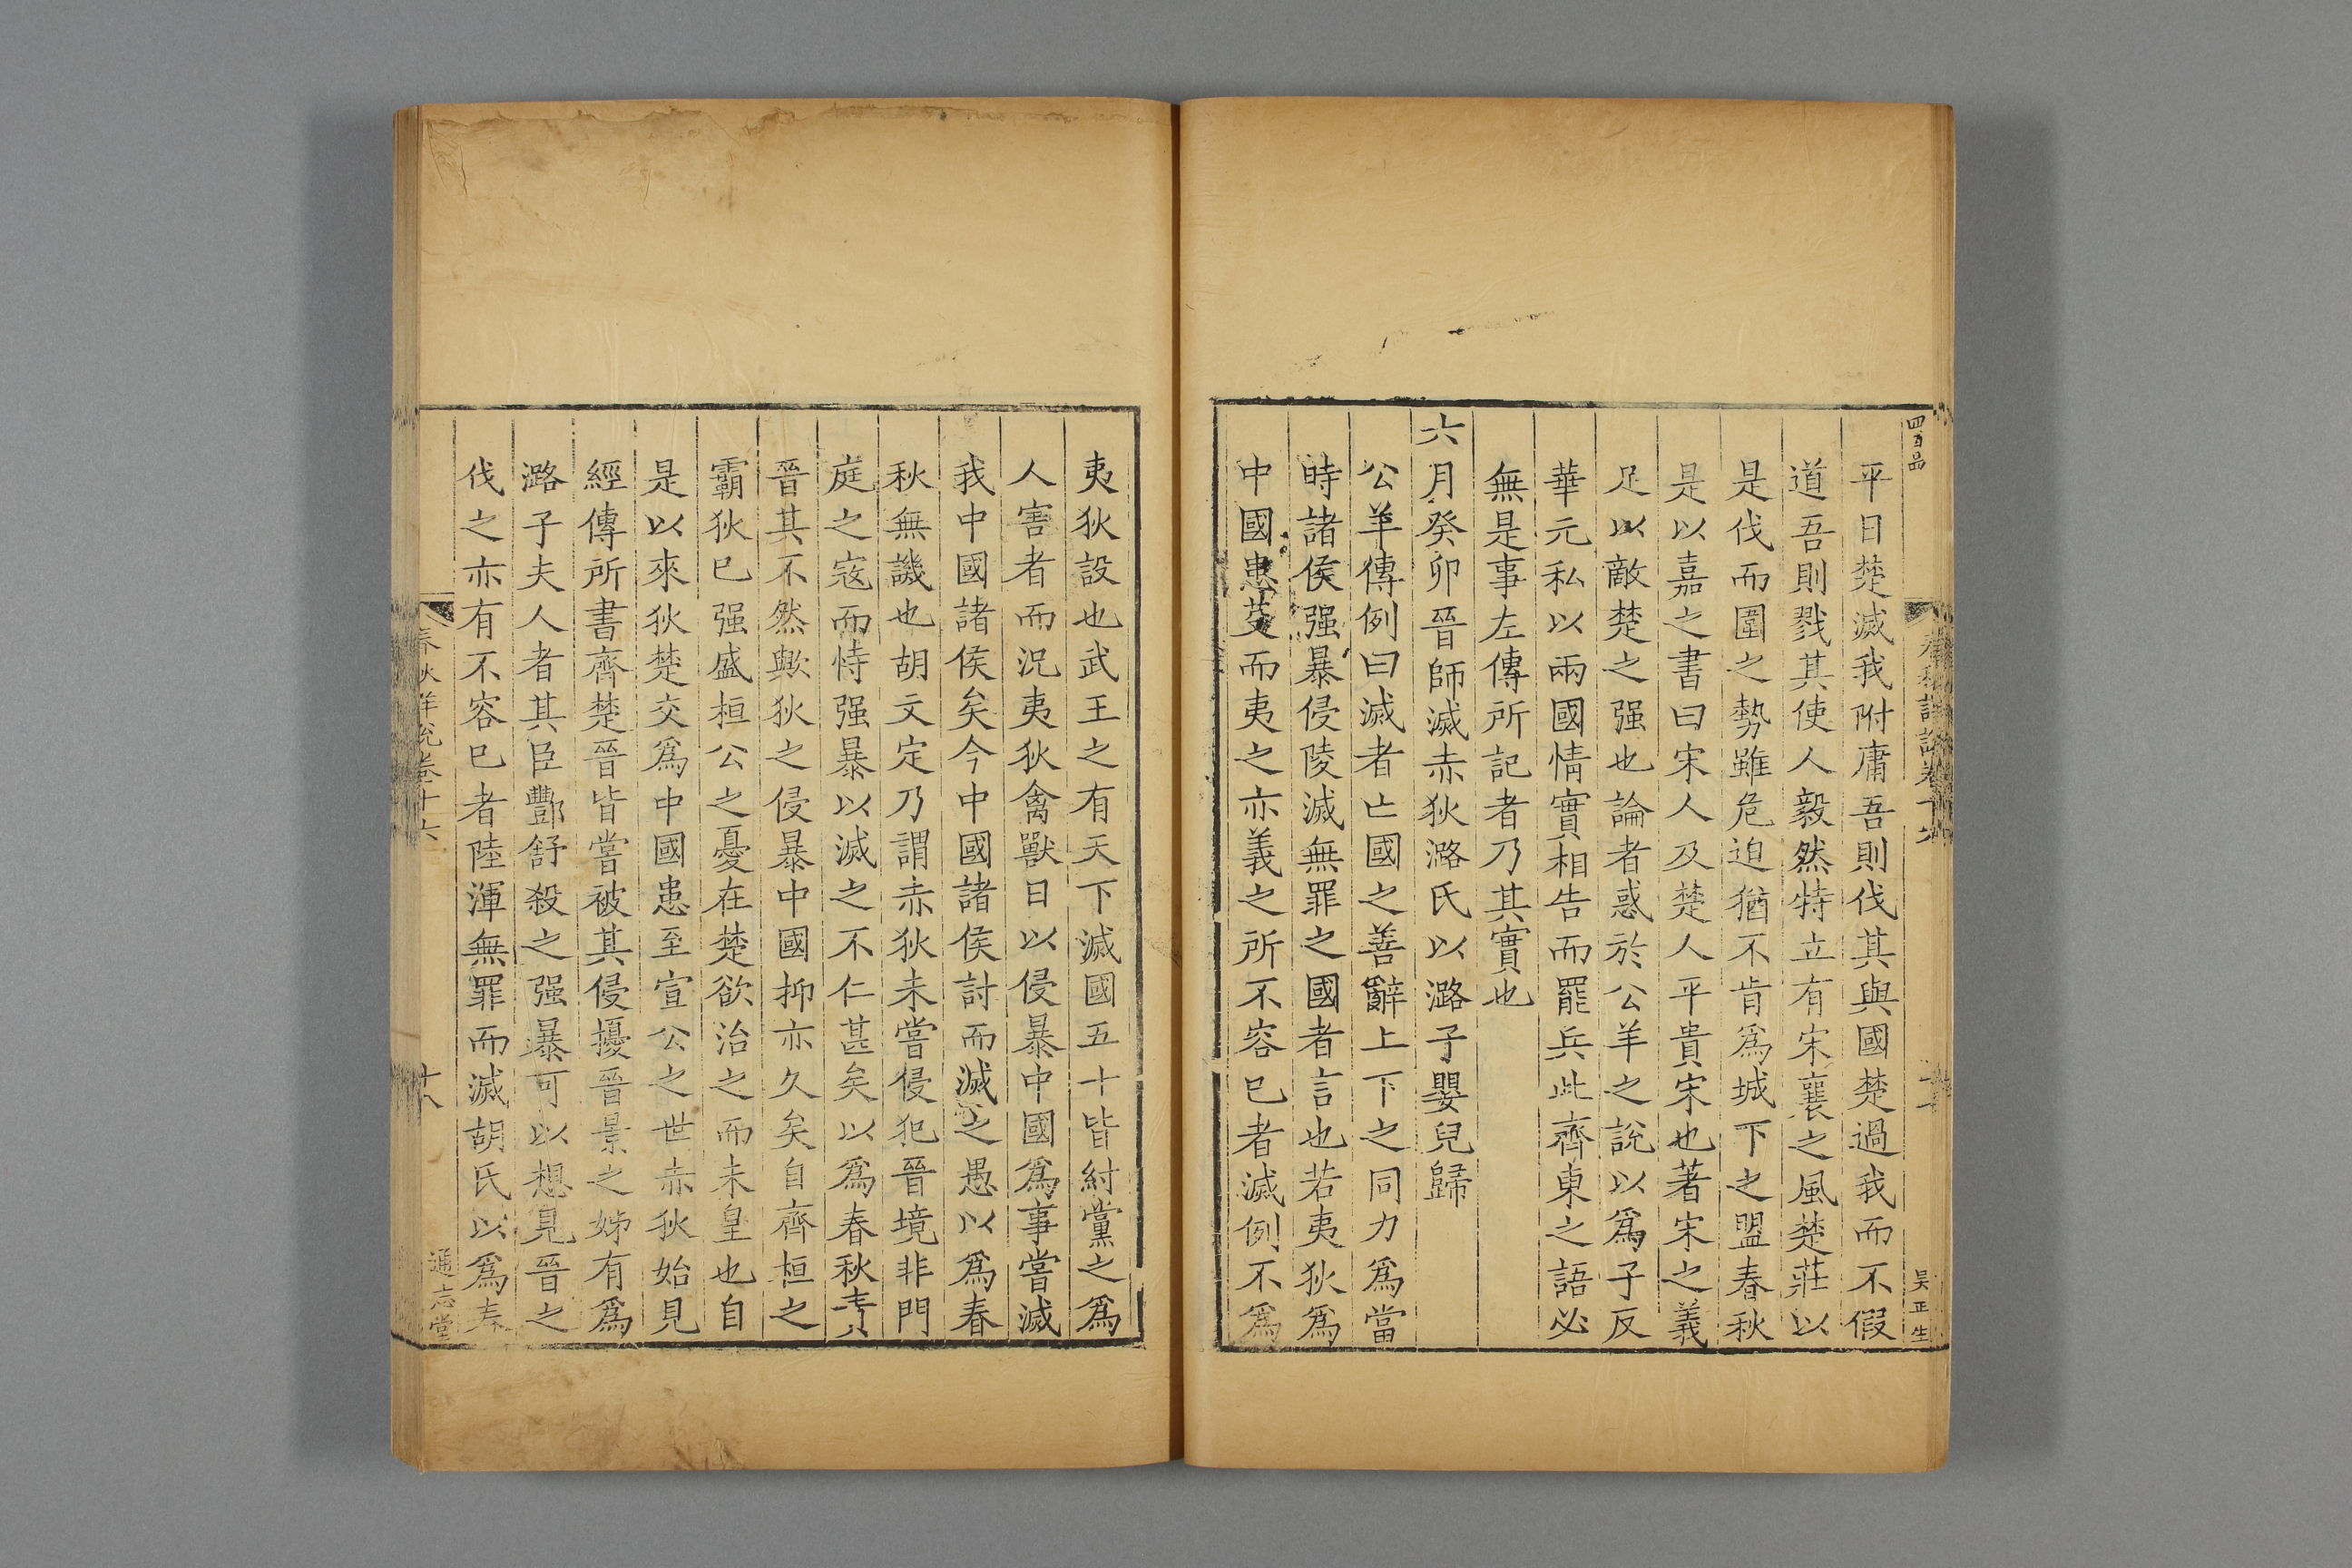 平日楚滅我附庸吾則伐其與國楚過我而不假
道吾則戮其使人毅然特立有宋襄之風楚莊以
是伐而圍之勢雖危迫猶不肯爲城下之盟春秋
是以嘉之書曰宋人及楚人平貴宋也著宋之義
足以敵楚之强也論者惑於公羊之說以爲子反
華元私以兩國情實相告而罷兵此齊東之語必
無是事左傳所記者乃其實也
六月癸卯晉師滅赤狄潞氏以潞子嬰兒歸
公羊傳例曰滅者亡國之善辭上下之同力爲當
時諸侯强暴侵陵滅無罪之國者言也若夷狄爲
中國患芟而夷之亦義之所不容已者滅例不爲
夷狄設也武王之有天下滅國五十皆紂黨之爲
人害者而況夷狄禽獸日以侵暴中國爲事嘗滅
我中國諸侯矣今中國諸侯討而滅之愚以爲春
秋無譏也胡文定乃謂赤狄未嘗侵犯晉境非門
庭之寇而恃强暴以滅之不仁甚矣以爲春秋責
晉其不然歟狄之侵暴中國抑亦久矣自齊桓之
霸狄已强盛桓公之憂在楚欲治之而未皇也自
是以來狄楚交爲中國患至宣公之世赤狄始見
經傳所書齊楚晉皆嘗被其侵擾晉景之姊有爲
潞子夫人者其臣酆舒殺之强暴可以想見晉之
伐之亦有不容已者陸渾無罪而滅胡氏以爲春
春秋詳說卷十六
十六
通志堂
四百品
春秋詳說卷十六
吴正生